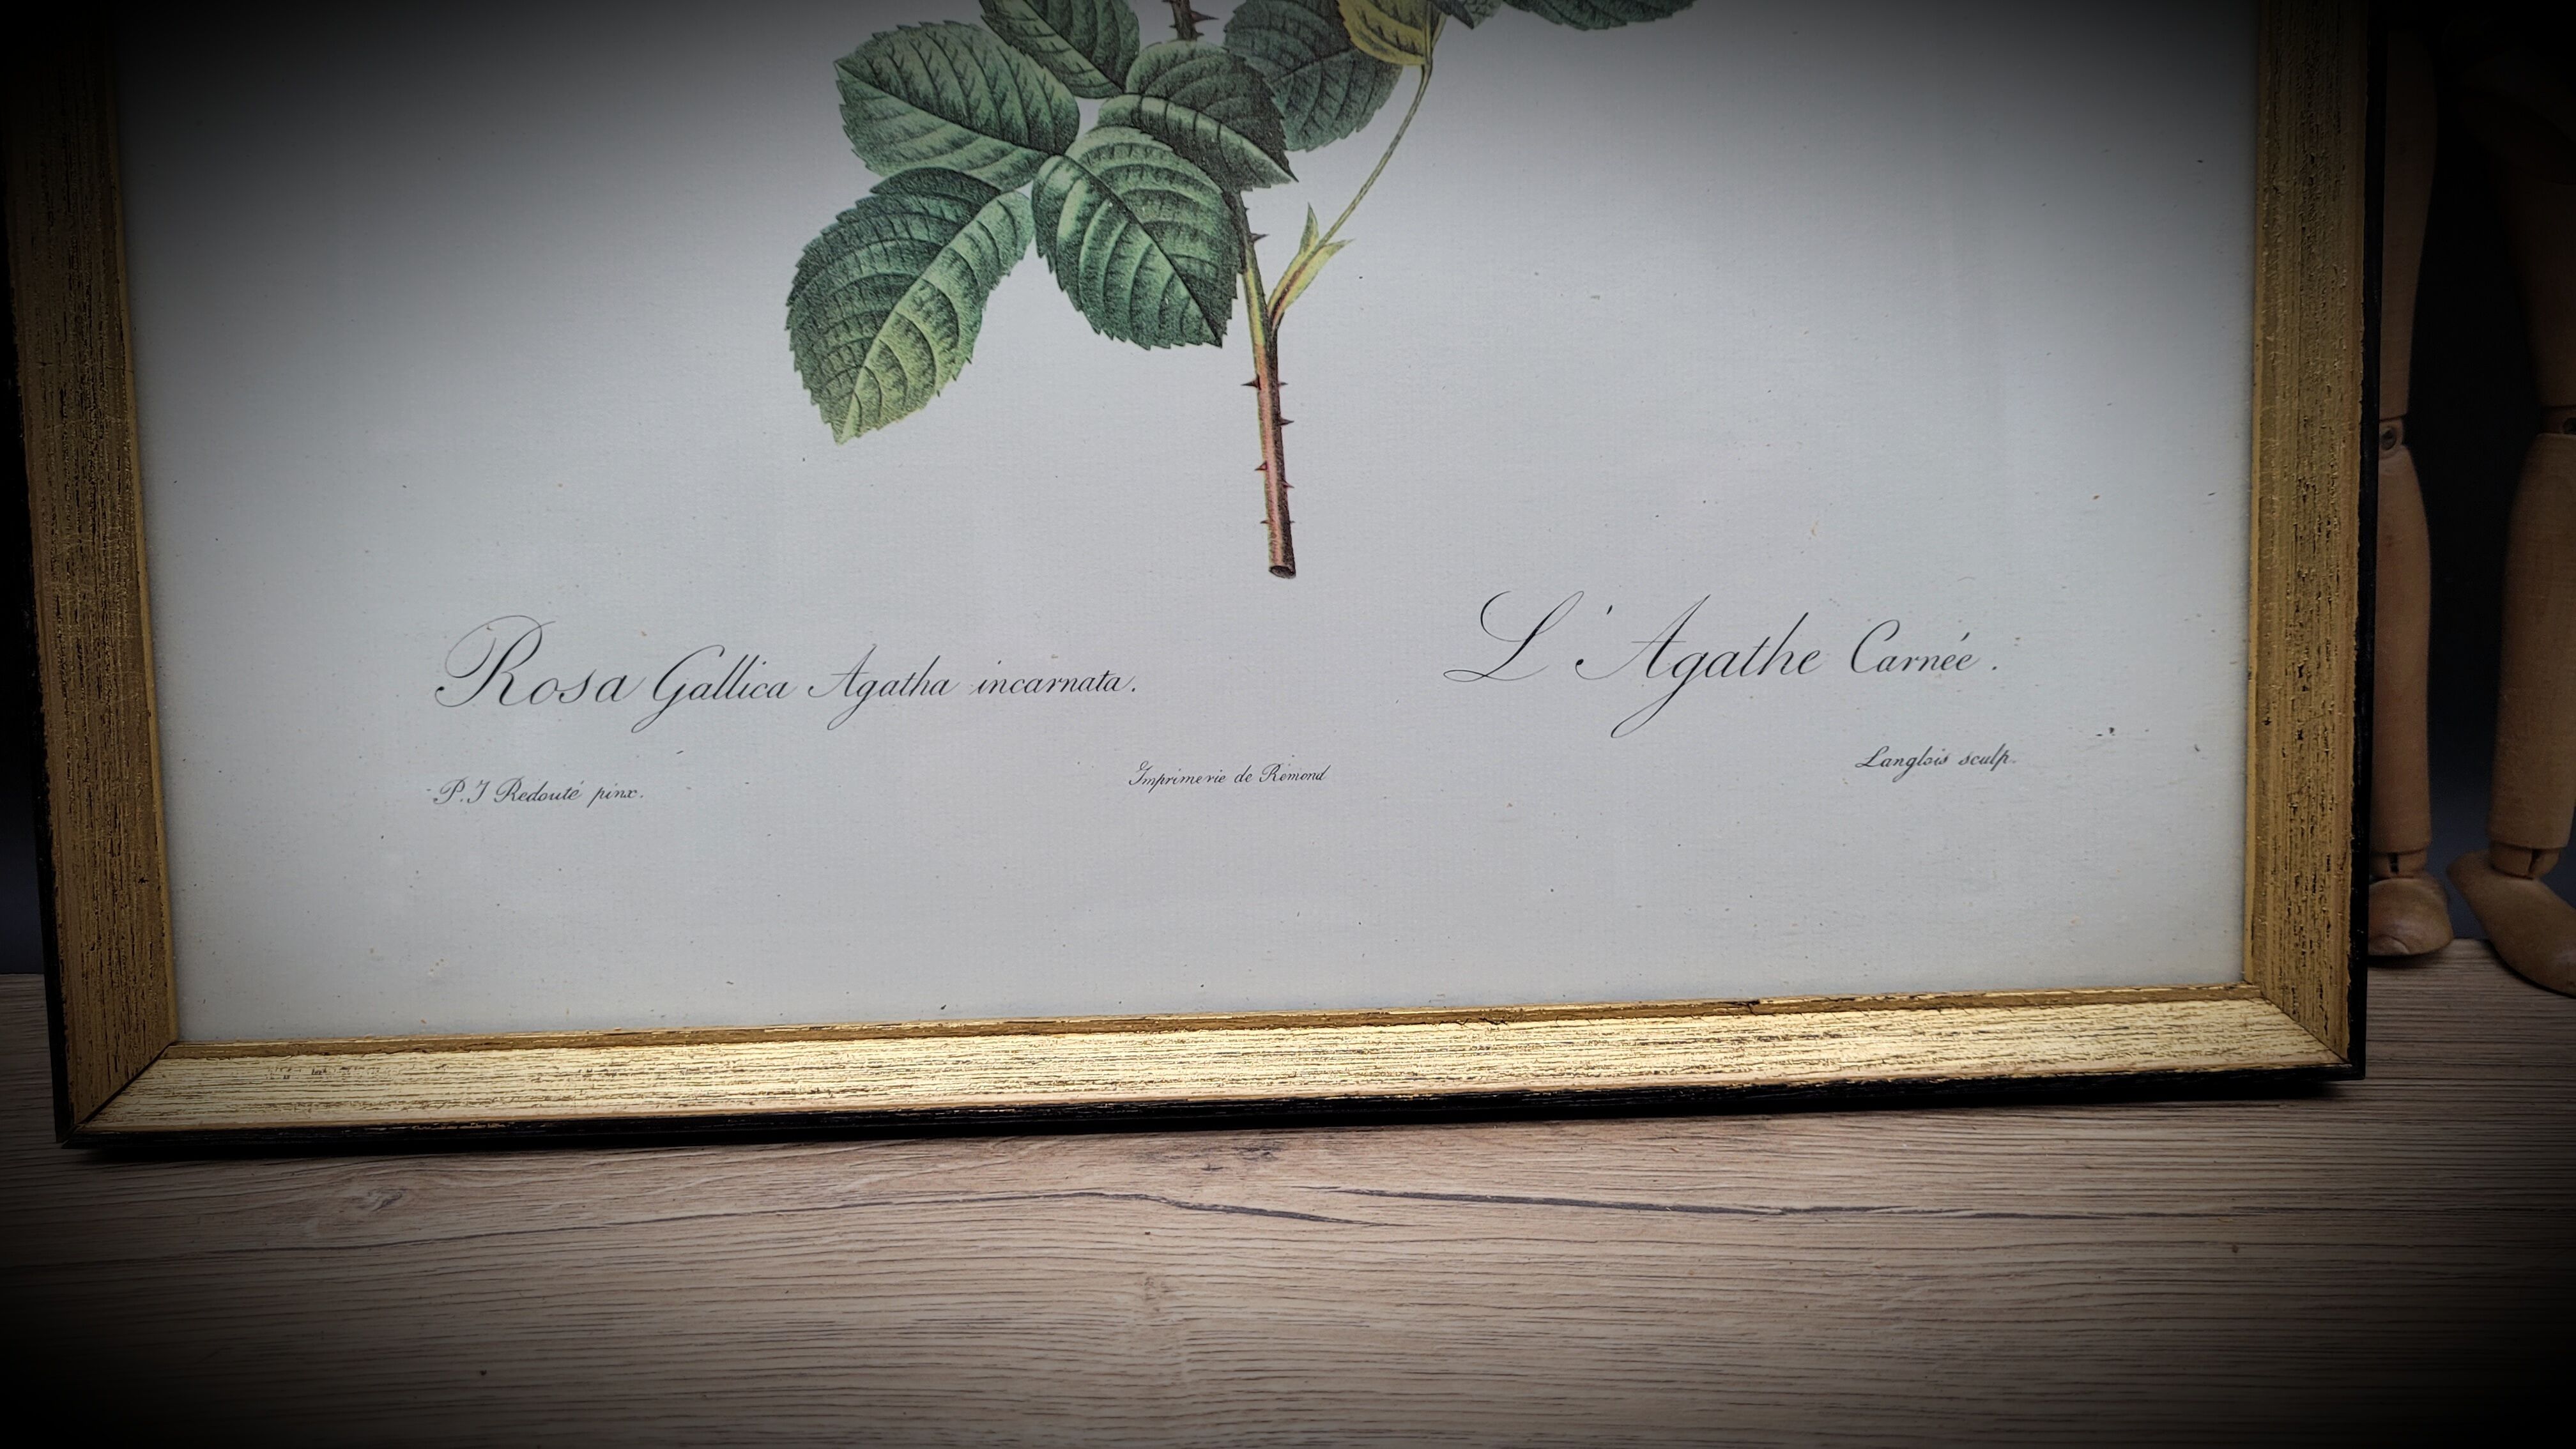 Rosa Gallica Agatha incarnata.
L'Agathe Carnée.
P. J Redouté pinx.
Imprimerie de Rémond
Langlois sculp.